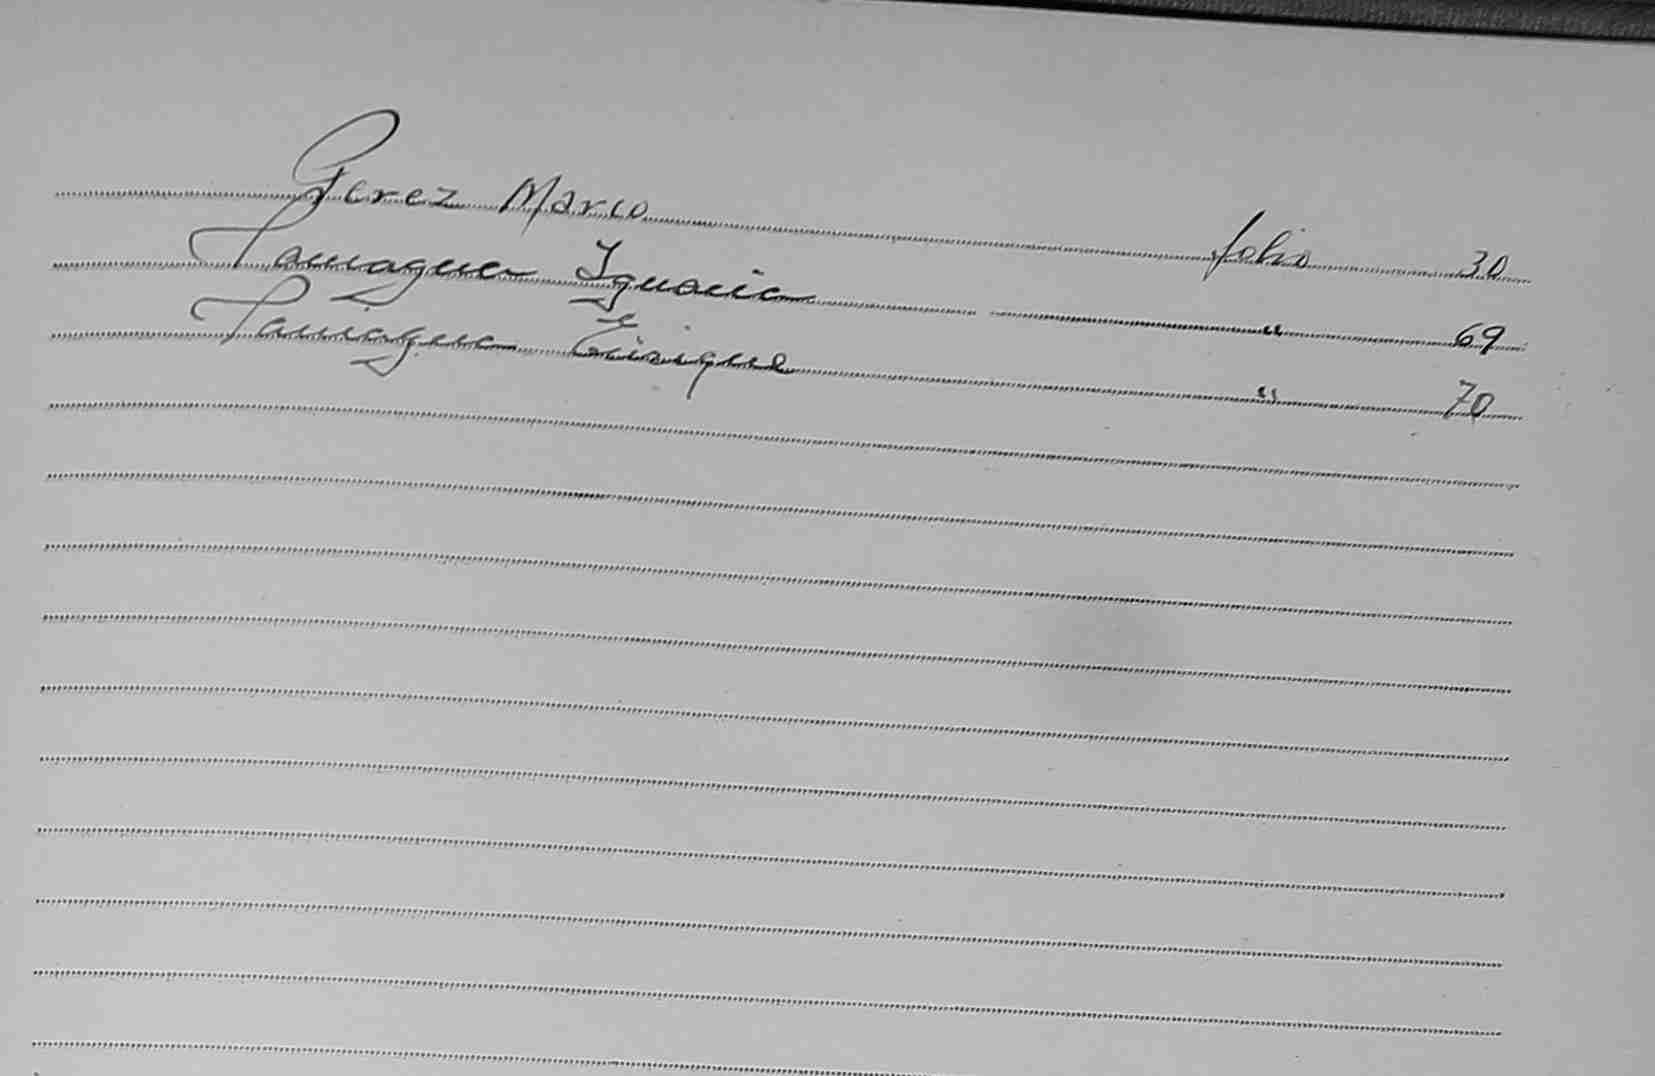 Perez Marco folio 30
Paniagua Ignacio " 69
Paniagua Enrique " 70